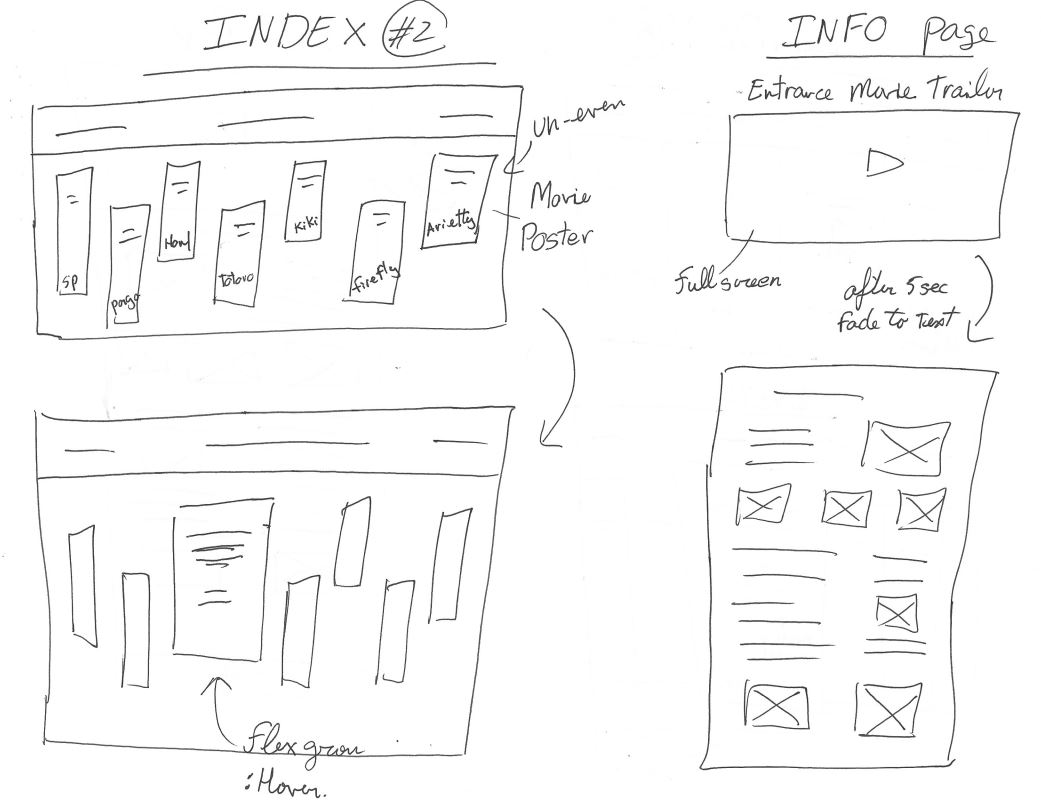 INDEX #2
un-even
Movie
Poster
SP
Ponyo
Howl
Totoro
KiKi
firefly
Arietty
Flex grow
:Hover.
INFO page
Entrance Movie Trailer
Full screen
after 5 sec
fade to Text